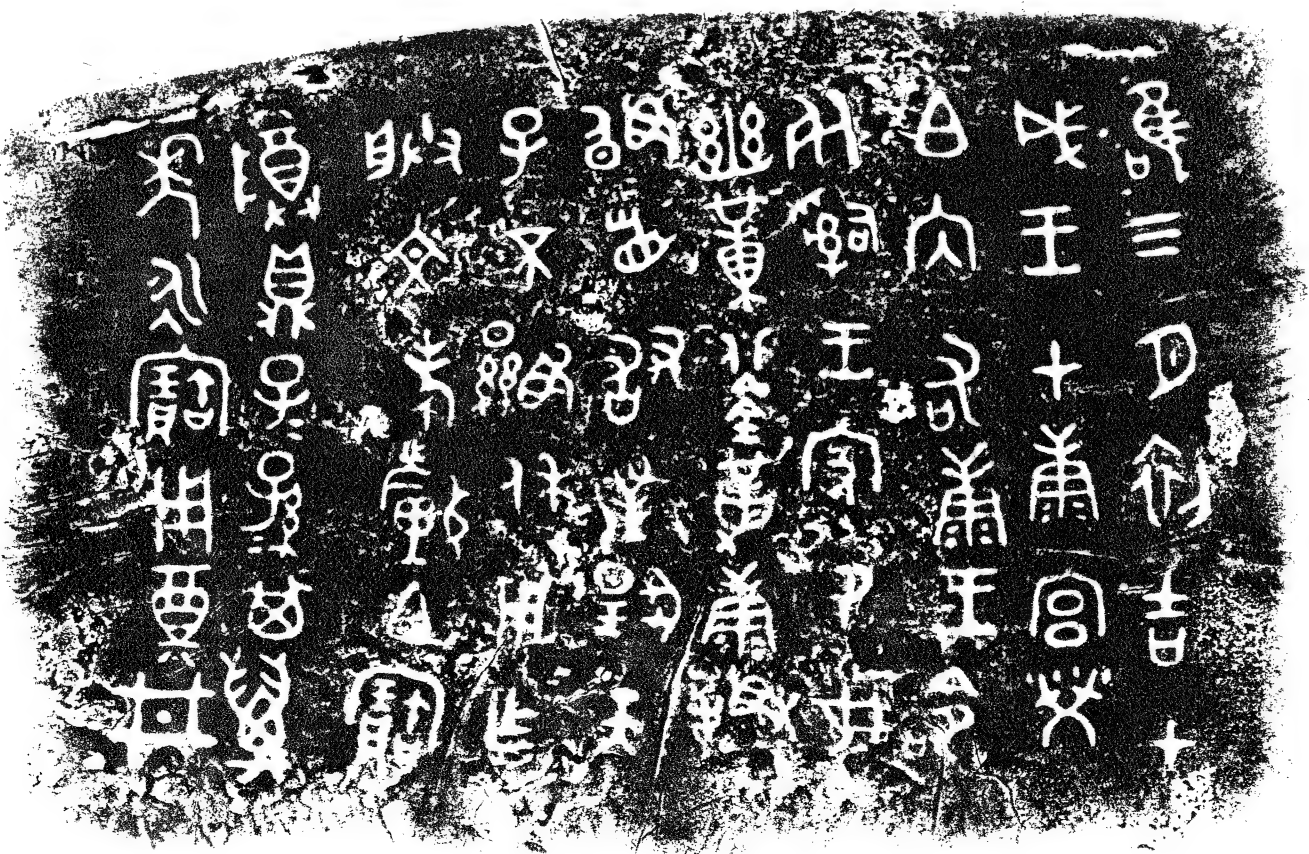 唯三月初吉甲
戌王才康宮𤇾
白内右康王令
死𤔲王家令女
幽黃鋚革康拜
𩒨首敢對揚天
子不顯休用乍
朕文考釐白寶
尊鼎子=孫=其萬
年永寶用奠井